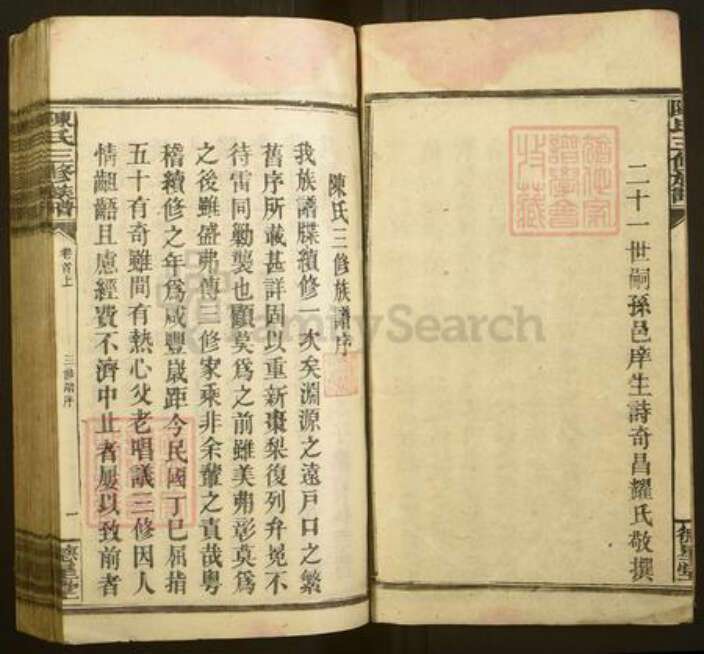 二十一世嗣孫邑庠生詩奇昌耀氏敬撰
陳氏三修族譜序
我族譜牒續修一次矣淵源之遠戸口之繁
舊序所載甚詳固以重新棗梨復列弁冕不
待雷同勦襲也顧莫爲之前雖美弗彰莫爲
之後雖盛弗傳三修家乘非余輩之責哉粵
稽續修之年爲咸豐歲距今民國丁巳屈指
五十有奇雖間有熱心父老唱議三修因人
情齟齬且慮經費不濟中止者屢以致前者
陳氏三修族譜
卷首上
三修譜序
一
FamilySearch